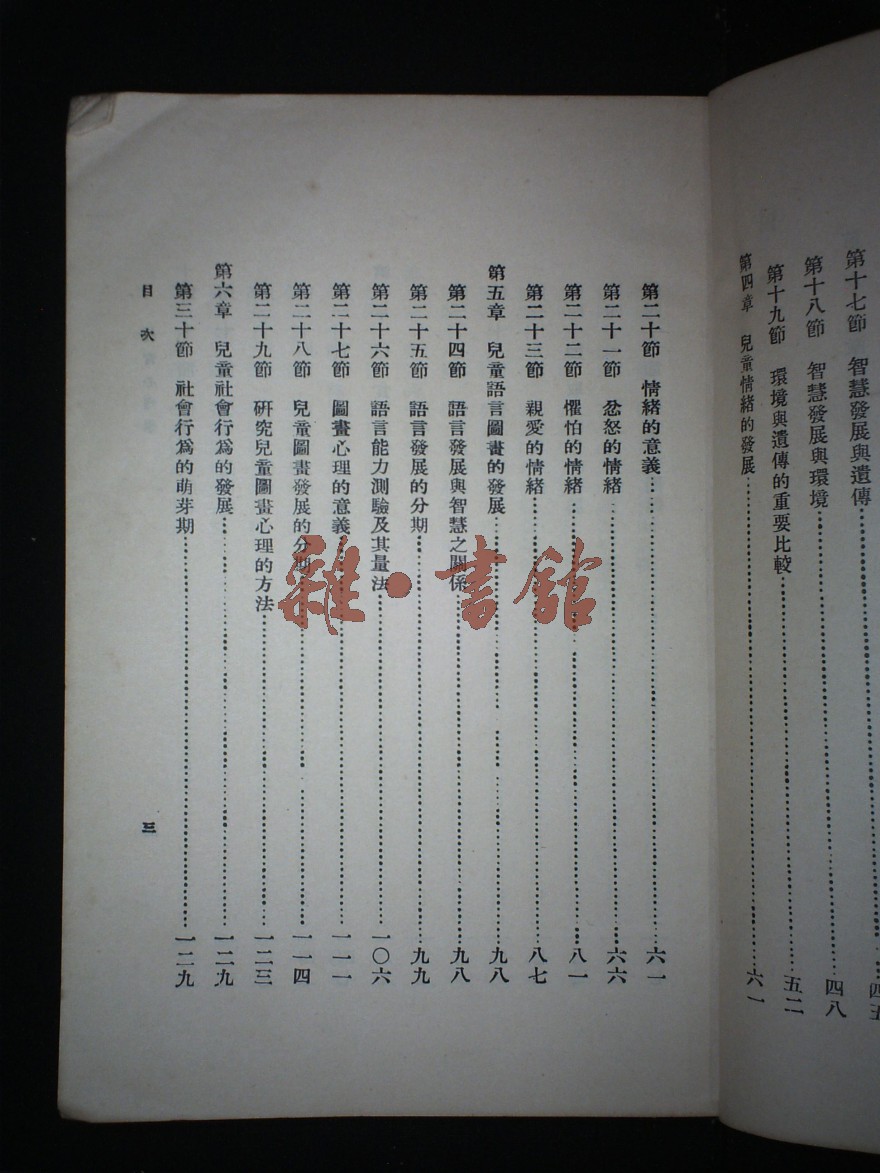 第十七節 智慧發展與遺傳……四五
第十八節 智慧發展與環境……四八
第十九節 環境與遺傳的重要比較……五二
第四章 兒童情緒的發展……六一
第二十節 情緒的意義……六一
第二十一節 忿怒的情緒……六六
第二十二節 懼怕的情緒……八一
第二十三節 親愛的情緒……八七
第五章 兒童語言圖畫的發展……九八
第二十四節 語言發展與智慧之關係……九八
第二十五節 語言發展的分期……九九
第二十六節 語言能力測驗及其量法……一〇六
第二十七節 圖畫心理的意義……一一一
第二十八節 兒童圖畫發展的分期……一一四
第二十九節 研究兒童圖畫心理的方法……一二三
第六章 兒童社會行爲的發展……一二九
第三十節 社會行爲的萌芽期……一二九
目次 三
雜·書館